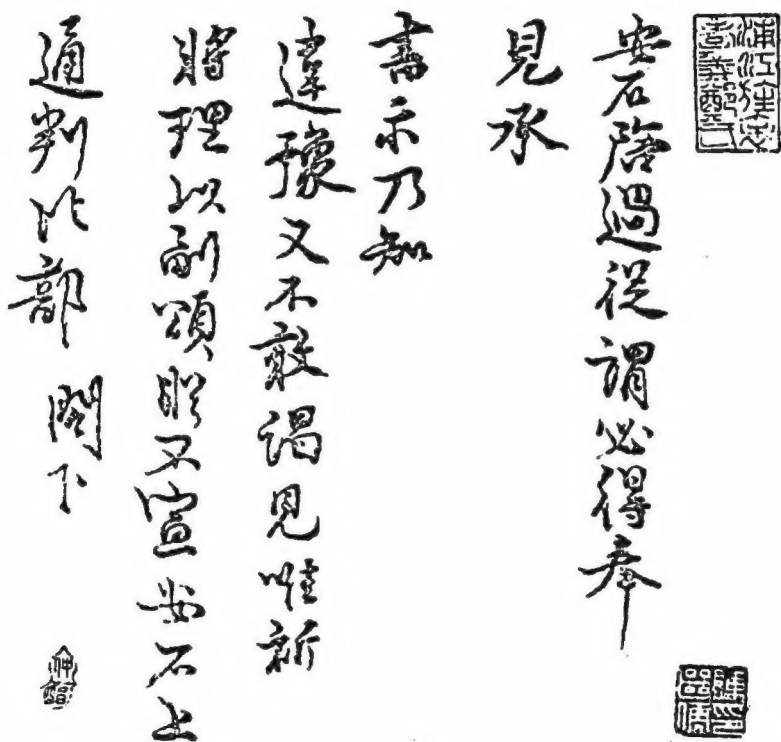 安石啓過從謂必得奉
見承
書示乃知
違豫又不敢謁見唯祈
將理以副頌盼不宣安石上
通判比部 閣下